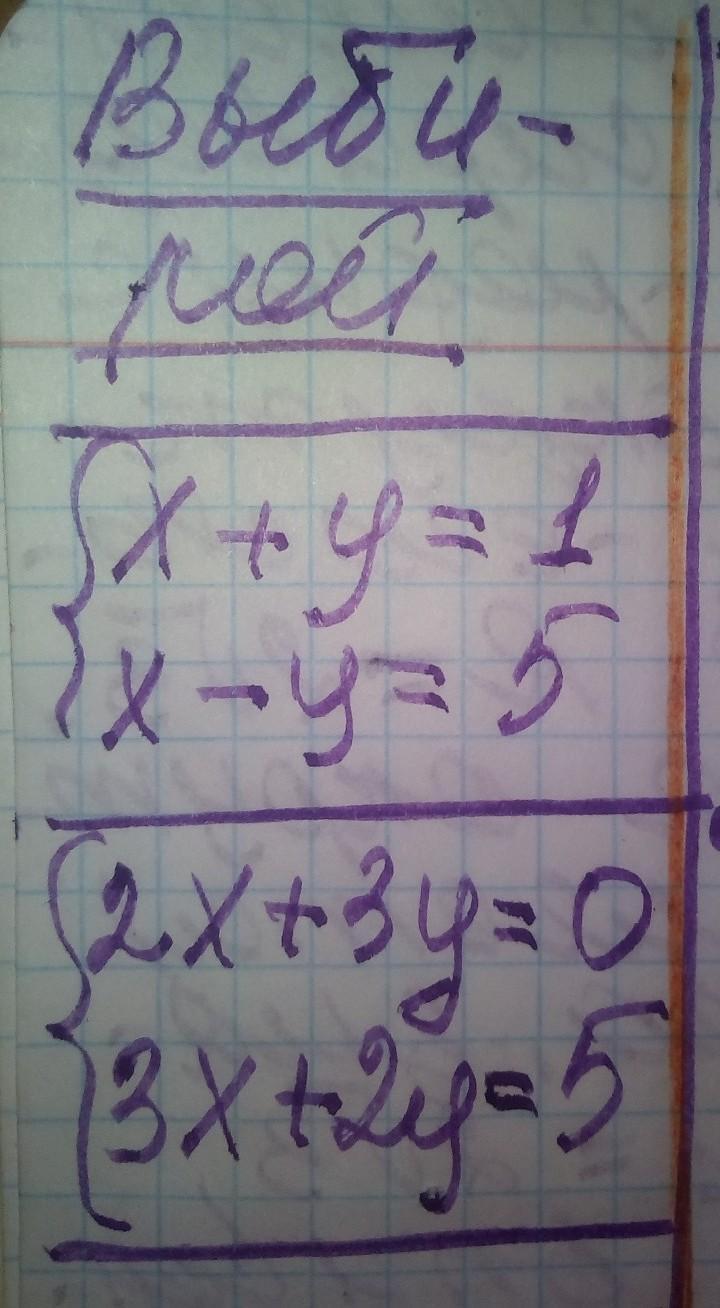 Выби-
рай
x + y = 1
x - y = 5
2x + 3y = 0
3x + 2y = 5